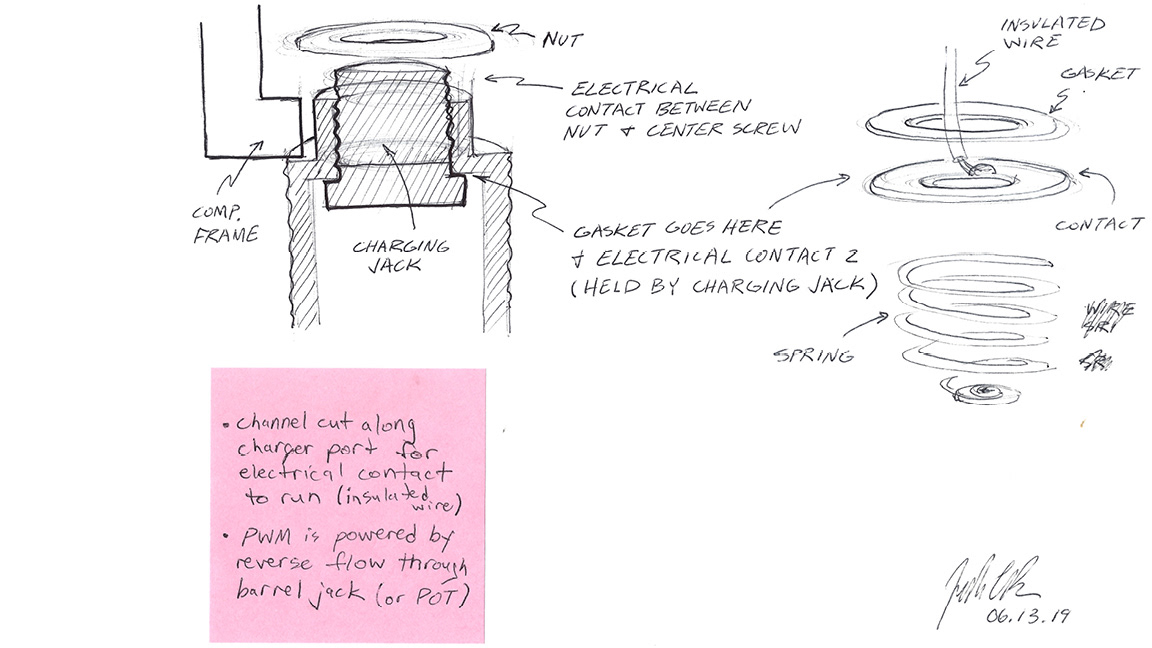 NUT
ELECTRICAL
CONTACT BETWEEN
NUT & CENTER SCREW
COMP.
FRAME
CHARGING
JACK
GASKET GOES HERE
& ELECTRICAL CONTACT 2
(HELD BY CHARGING JACK)
INSULATED
WIRE
GASKET
CONTACT
SPRING
WIRE
• channel cut along
charger port for
electrical contact
to run (insulated
wire)
• PWM is powered by
reverse flow through
barrel jack (or POT)
06.13.19